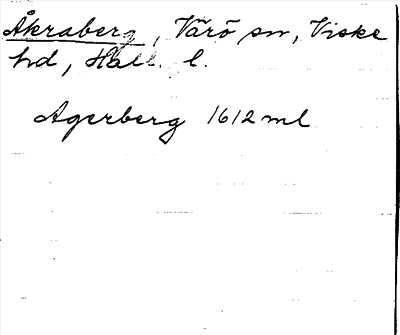 Åkraberg, Värö sn, Viske
hd, Hall. l.
Agerberg 1612 ml